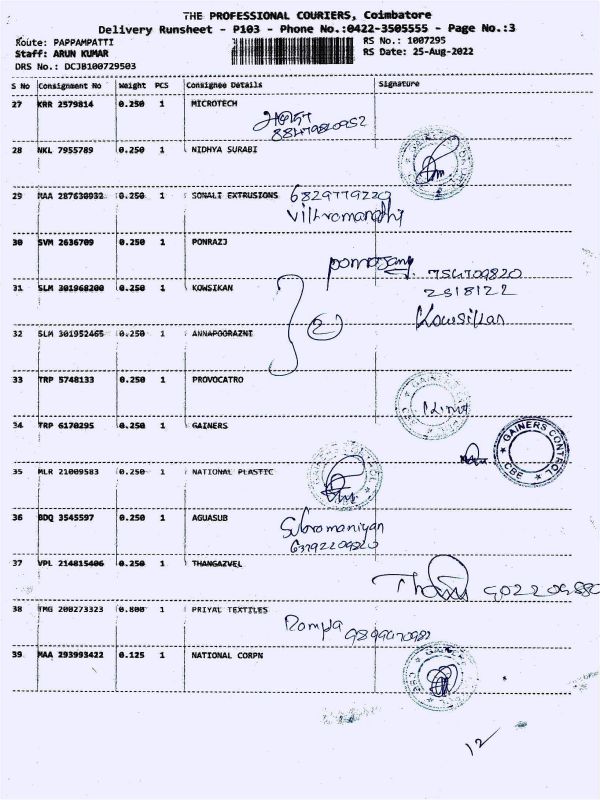 THE PROFESSIONAL COURIERS, Coimbatore
Delivery Runsheet - P103 - Phone No.:0422-3505555 - Page No.:3
Route: PAPPAMPATTI
Staff: ARUN KUMAR
DRS No.: DCJB100729503
RS No.: 1007295
RS Date: 25-Aug-2022
S No Consignment No Weight PCS Consignee Details Signature
27 KRR 2579814 0.250 1 MICROTECH
28 NKL 7955789 0.250 1 NIDHYA SURABI
29 MAA 287630932 0.250 1 SONALI EXTRUSIONS 6829779220
30 SVM 2636709 0.250 1 PONRAZJ
31 SLM 301968200 0.250 1 KOWSIKAN
2518122
Kowsikan
32 SLM 301952465 0.250 1 ANNAPOORAZNI
2
33 TRP 5748133 0.250 1 PROVOCATRO
34 TRP 6170295 0.250 1 GAINERS
GAINERS CONTROL
CBE
35 MLR 21009583 0.250 1 NATIONAL PLASTIC
36 BDQ 3545597 0.250 1 AGUASUB
Subromaniyan
37 VPL 214815406 0.250 1 THANGAZVEL
38 TMG 200273323 0.800 1 PRIYAL TEXTILES
39 MAA 293993422 0.125 1 NATIONAL CORPN
12